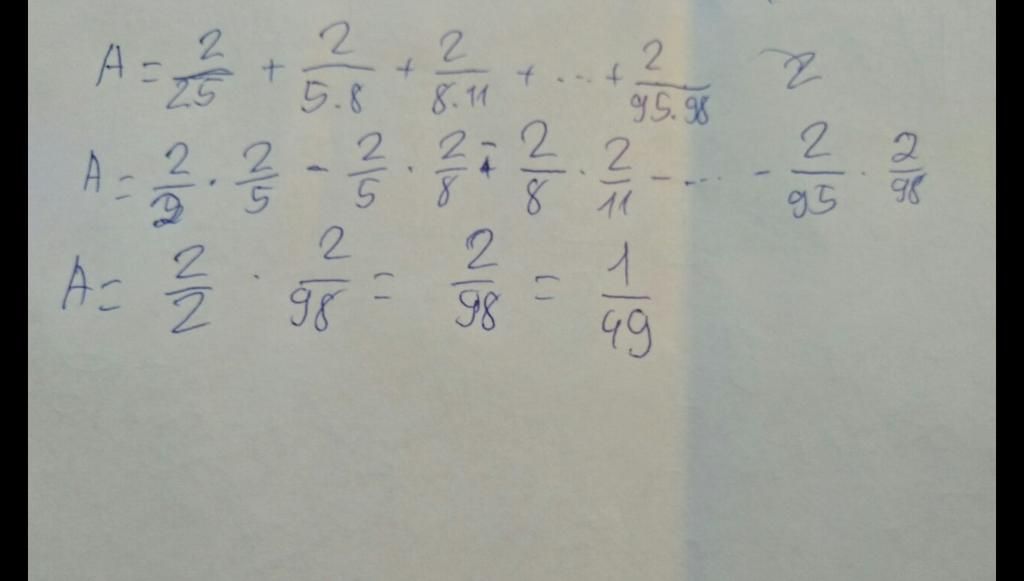 A = 2/25 + 2/5.8 + 2/8.11 + ... + 2/95.98 2
A = 2/2 . 2/5 - 2/5 . 2/8 + 2/8 . 2/11 - ... - 2/95 . 2/98
A = 2/2 . 2/98 = 2/98 = 1/49